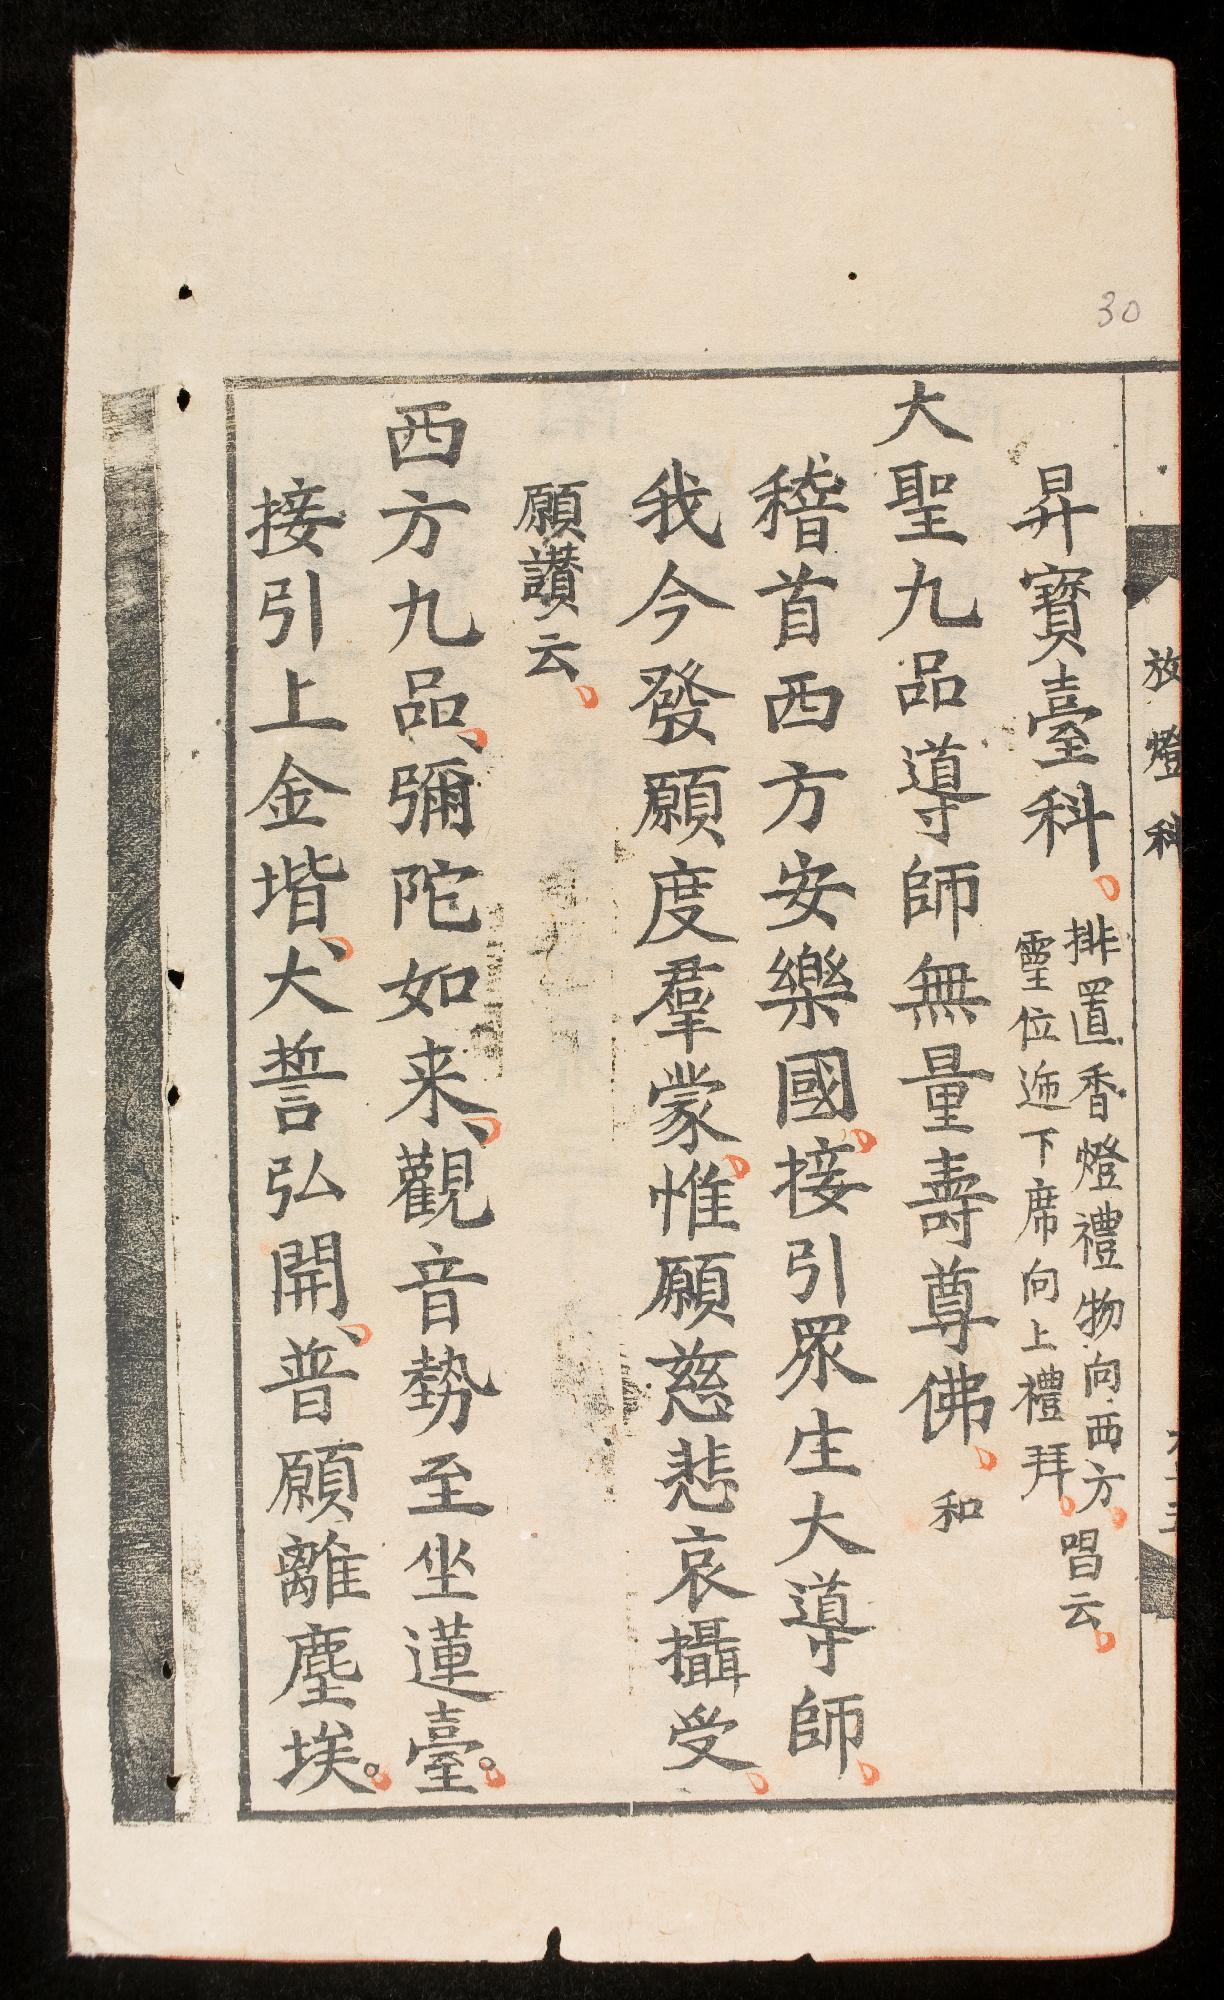 30
放燈科
昇寶臺科
排置香燈禮物向西方
靈位迤下席向上禮拜
唱云
大聖九品導師無量壽尊佛 和
稽首西方安樂國接引眾生大導師
我今發願度羣蒙惟願慈悲哀攝受
願讃云
西方九品、彌陀如来、觀音勢至坐蓮臺。
接引上金堦、大誓弘開、普願離塵埃。